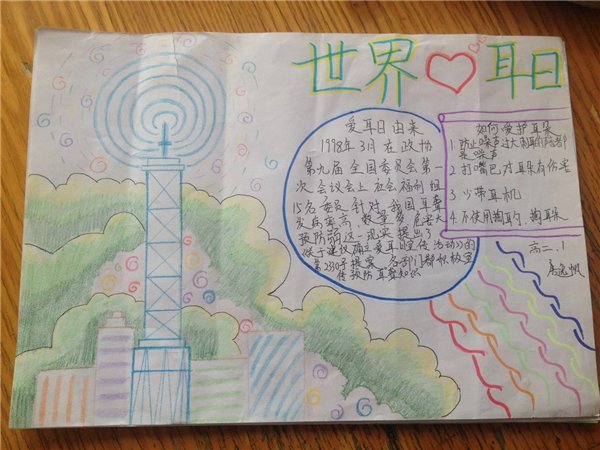 世界 耳日
爱耳日由来
1998年3月在政协
第九届全国委员会第一
次会议会上社会福利组
15名委员针对我国耳聋
发病率高,数量多,危害大
预防弱这一现实提出了
关于建议确立爱耳日宣传活动》的
第2330号提案 各部门都积极宣
传预防耳聋知识
如何爱护耳朵
1. 防止噪声过大
是噪声
2. 打嘴巴对耳朵有伤害
3 少带耳机
4. 不使用掏耳勺,掏耳朵
高二.1